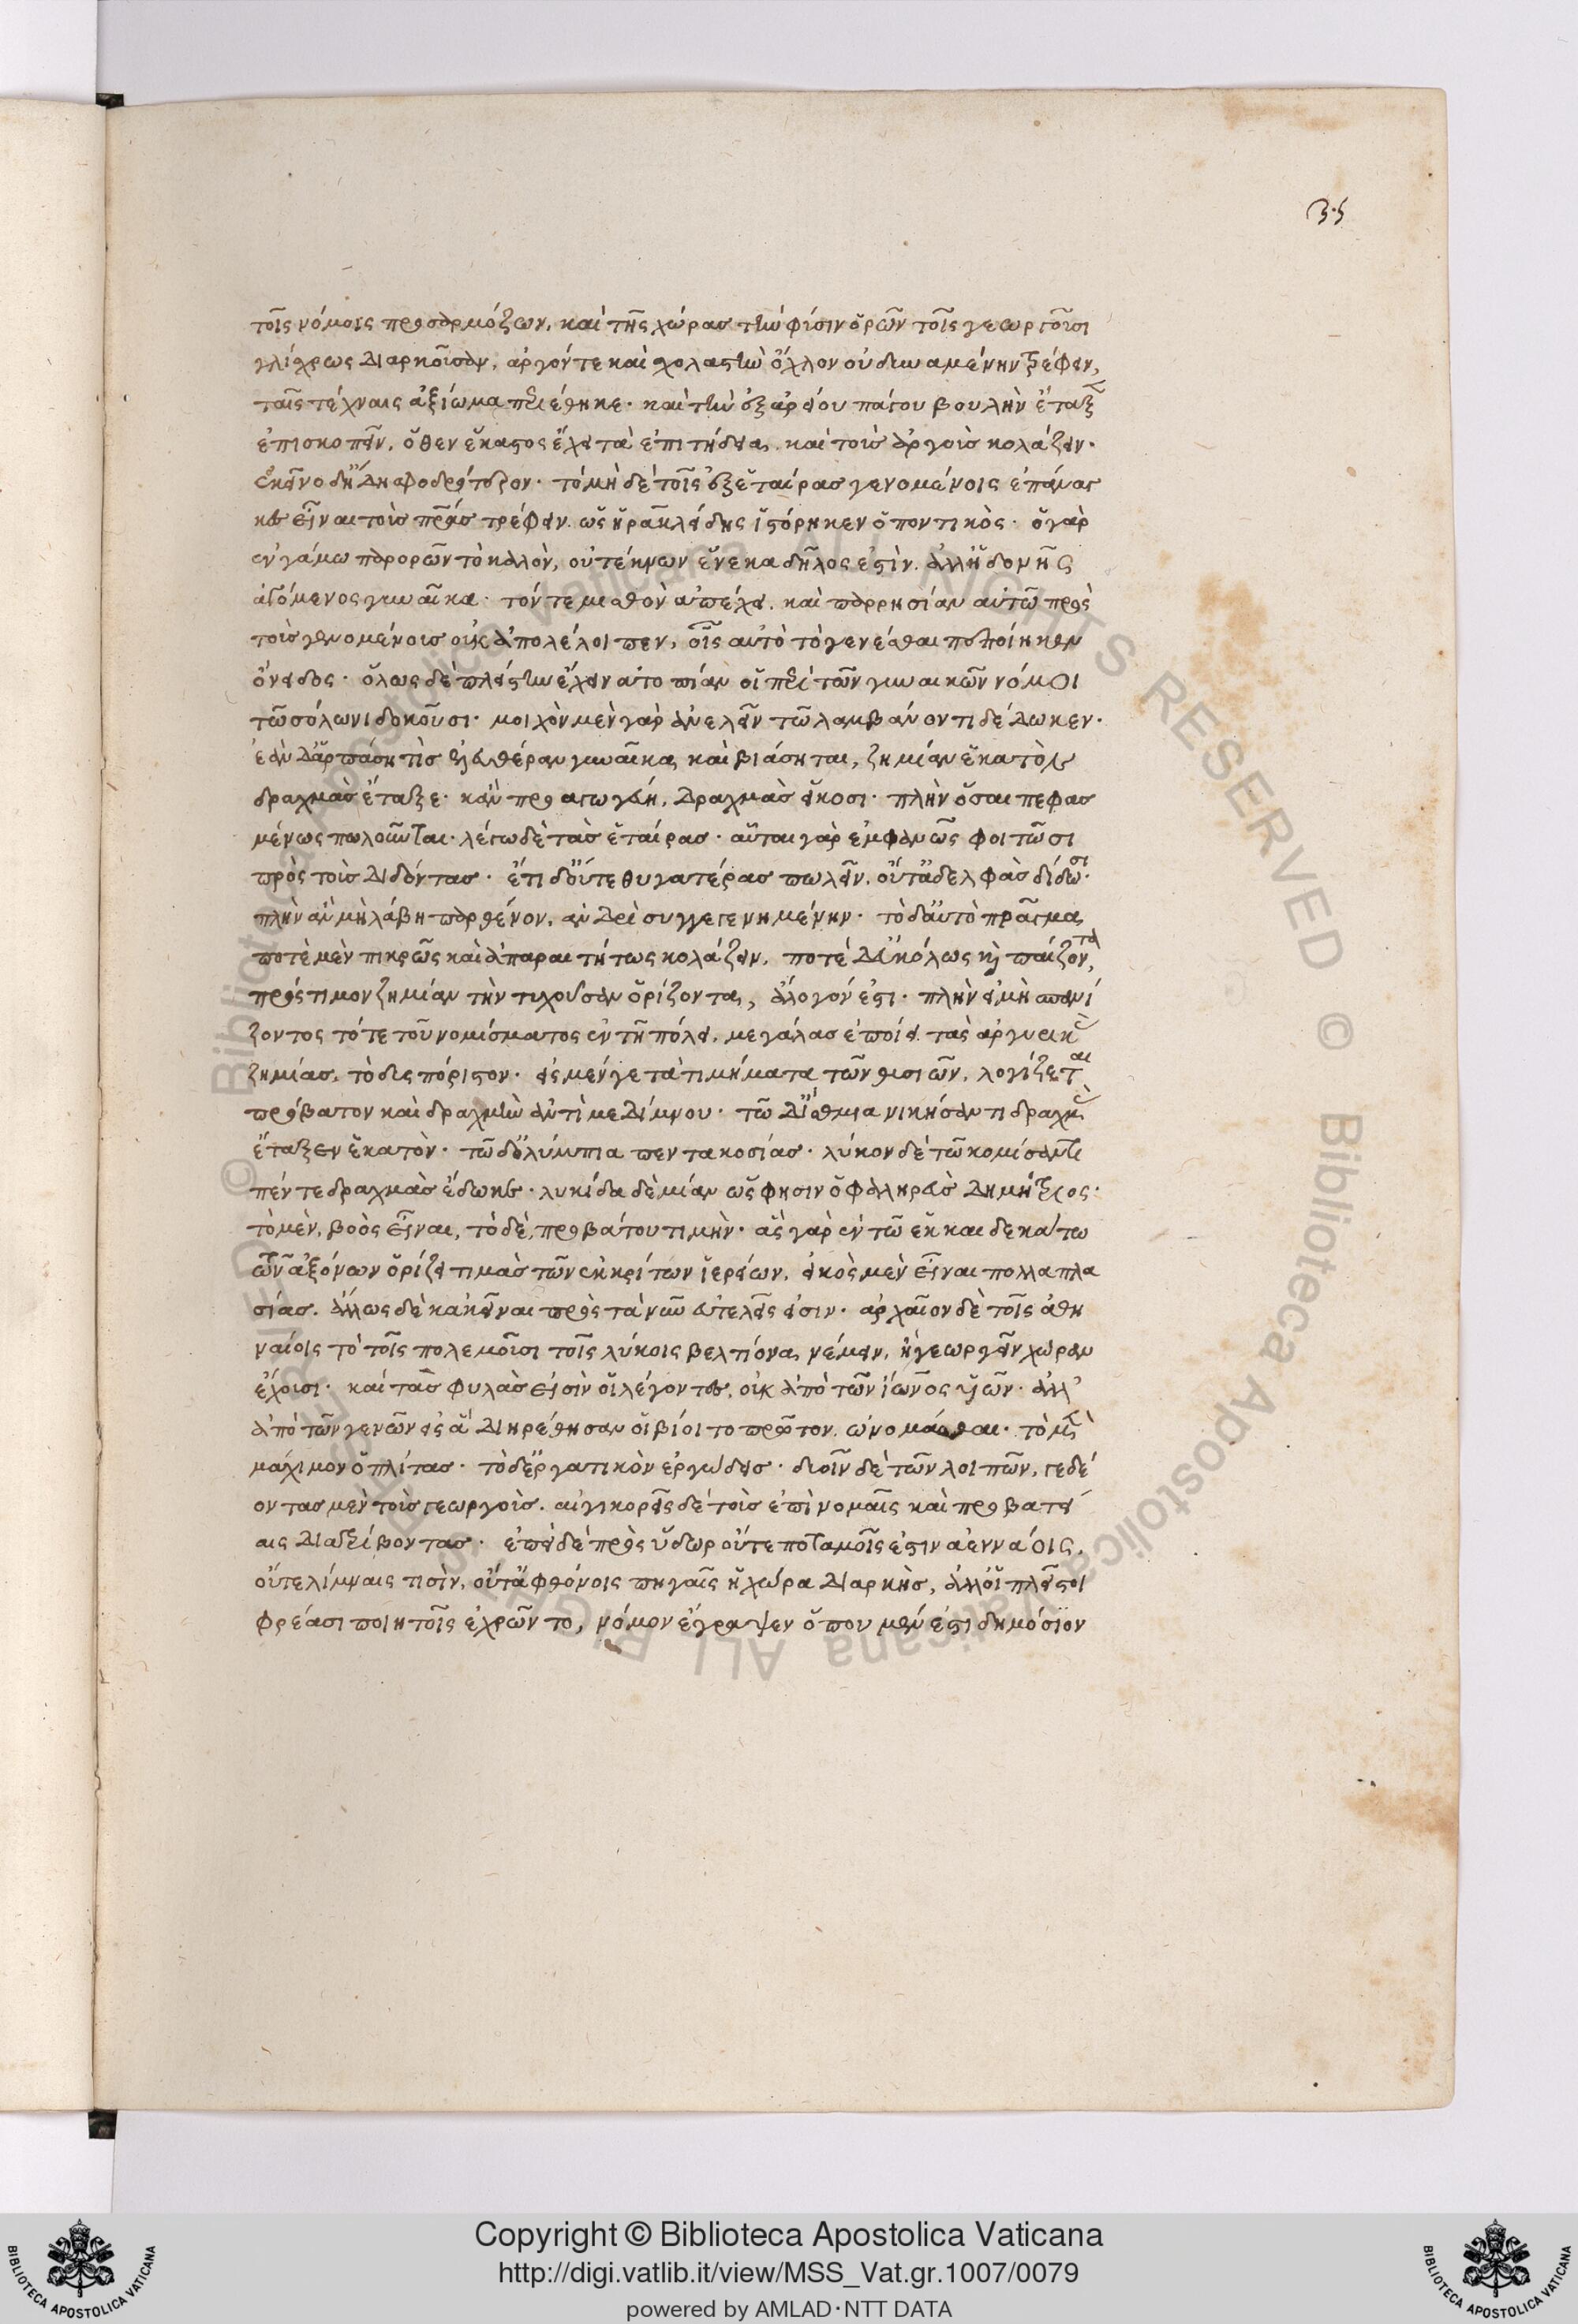 35
τοῖς νόμοις προσαρμόζων, καὶ τῆς χώρας τὴν φύσιν ὁρῶν τοῖς γεωργοῦσι
γλίχρως διαρκοῦσαν, ἀργόν τε καὶ σχολαστὴν ὄχλον οὐ δυναμένην τρέφειν,
ταῖς τέχναις ἀξίωμα περιέθηκε· καὶ τὴν ἐξ ἀρείου πάγου βουλὴν ἔταξεν
ἐπισκοπεῖν, ὅθεν ἕκαστος ἔχει τὰ ἐπιτήδεια, καὶ τοὺς ἀργοὺς κολάζειν·
ἐκεῖνο δ' ἤδη σφοδρότερον· τὸ μὴ δὲ τοῖς ἐξ ἑταίρας γενομένοις ἐπάναγ
κες εἶναι τοὺς πατέρας τρέφειν, ὡς ἡρακλείδης ἱστόρηκεν ὁ ποντικός· ὁ γὰρ
ἐν γάμω παρορῶν τὸ καλὸν, οὐ τέκνων ἕνεκα δῆλος ἐστὶν, ἀλλ' ἡδονῆς
ἀγόμενος γυναῖκα· τόν τε μισθὸν ἀπέχει, καὶ παρρησίαν αὐτῶ πρὸς
τοὺς γενομένους οὐκ ἀπολέλοιπεν, οἷς αὐτὸ τὸ γενέσθαι πεποίηκεν
ὄνειδος· ὅλως δὲ πλείστην ἔχειν ἀτοπίαν οἱ περὶ τῶν γυναικῶν νόμοι
τῶ σόλωνι δοκοῦσι· μοιχὸν μὲν γὰρ ἀνελεῖν τῶ λαμβάνοντι δέδωκεν·
ἐὰν δ' ἁρπάση τὶς ἐλευθέραν γυναῖκα, καὶ βιάσηται, ζημίαν ἑκατὸν
δραχμὰς ἔταξε· κἂν προαγωγεύη, δραχμὰς εἴκοσι· πλὴν ὅσαι πεφας
μένως πωλοῦνται· λέγω δὲ τὰς ἑταίρας· αὗται γὰρ ἐμφανῶς φοιτῶσι
πρὸς τοὺς διδόντας· ἔτι δ' οὔτε θυγατέρας πωλεῖν, οὔτ' ἀδελφὰς δίδωσι·
πλὴν ἂν μὴ λάβη παρθένον, ἀνδρὶ συγγεγενημένην· τὸ δ' αὐτὸ πρᾶγμα,
ποτὲ μὲν πικρῶς καὶ ἀπαραιτήτως κολάζειν, ποτὲ δ' εὐκόλως καὶ παίζοντα,
πρόστιμον ζημίαν τὴν τυχοῦσαν ὁρίζοντα, ἄλογόν ἐστι· πλὴν εἰ μὴ σπανί
ζοντος τότε τοῦ νομίσματος ἐν τῆ πόλει, μεγάλας ἐποίει τὰς ἀργυρικὰς
ζημίας, τὸ δυσπόριστον· εἰς μέν γε τὰ τιμήματα τῶν θυσιῶν, λογίζεται
πρόβατον καὶ δραχμὴν ἀντὶ μεδίμνου· τῶ δ' ἴσθμια νικήσαντι δραχμὰς
ἔταξεν ἑκατόν· τῶ δ' ὀλύμπια πεντακοσίας· λύκον δὲ τῶ κομίσαντι
πέντε δραχμὰς ἔδωκε· λυκίδα δὲ μίαν ὥς φησιν ὁ φαληρεὺς δημήτριος·
τὸ μὲν, βοὸς εἶναι, τὸ δὲ, προβάτου τιμήν· ἃς γὰρ ἐν τῶ ἑκκαιδεκάτω
τῶν ἀξόνων ὁρίζει τιμὰς τῶν ἐκκρίτων ἱερείων, εἰκὸς μὲν εἶναι πολλαπλα
σίας. ἄλλως δὲ κἀκεῖναι πρὸς τὰ νῦν εὐτελεῖς εἰσιν· ἀρχαῖον δὲ τοῖς ἀθη
ναίοις τὸ τοῖς πολεμοῦσι τοῖς λύκοις βελτίονα, νέμειν, ἢ γεωργεῖν χώραν
ἔχουσι· καὶ τὰς φυλὰς εἰσὶν οἱ λέγοντες, οὐκ ἀπὸ τῶν ἴωνος υἱῶν· ἀλλ'
ἀπὸ τῶν γενῶν εἰς ἃ διηρέθησαν οἱ βίοι το πρῶτον, ὠνομάσθαι· τὸ μὲν
μάχιμον ὁπλίτας· τὸ δ' ἐργατικὸν ἐργάδεις· δυοῖν δὲ τῶν λοιπῶν, γεδέ
οντας μὲν τοὺς γεωργοὺς. αἰγικορεῖς δὲ τοὺς ἐπὶ νομαῖς καὶ προβατεί
αις διατρίβοντας· ἐπεὶ δὲ πρὸς ὕδωρ οὔτε ποταμοῖς ἐστιν ἀεννάοις,
οὔτε λίμναις τισὶν, οὔτ' ἀφθόνοις πηγαῖς ἡ χώρα διαρκὴς, ἀλλ' οἱ πλεῖστοι
φρέασι ποιητοῖς ἐχρῶντο, νόμον ἔγραψεν ὅπου μέν ἐστι δημόσιον
Copyright © Biblioteca Apostolica Vaticana
http://digi.vatlib.it/view/MSS_Vat.gr.1007/0079
powered by AMLAD·NTT DATA
BIBLIOTECA APOSTOLICA VATICANA
BIBLIOTECA APOSTOLICA VATICANA
© Biblioteca Apostolica Vaticana ALL RIGHTS RESERVED
© Biblioteca Apostolica Vaticana ALL RIGHTS RESERVED